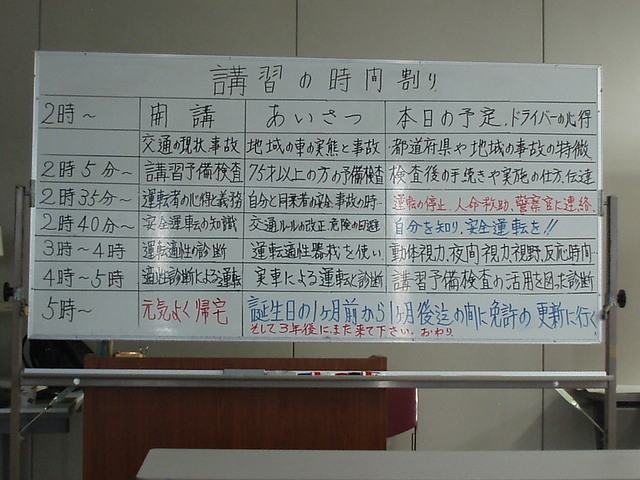 講習の時間割り
2時～ 開講 あいさつ 本日の予定、ドライバーの心得
交通の現状、事故 地域の車の実態と事故 都道府県や地域の事故の特徴
2時5分～ 講習予備検査 75才以上の方の予備検査 検査後の手続きや実施の仕方、伝達
2時35分～ 運転者の心得と義務 自分と同乗者の安全、事故の時… 運転の停止、人命救助、警察官に連絡
2時40分～ 安全運転の知識 交通ルールの改正、危険の回避 自分を知り、安全運転を!!
3時～4時 運転適性の診断 運転適性器械を使い 動体視力、夜間視力、視野、反応時間
4時～5時 適性診断による運転 実車による運転と診断 講習予備検査の活用を図った診断
5時～ 元気よく帰宅 誕生日の1ヶ月前から1ヶ月後迄の間に免許の更新に行く
そして3年後にまた来て下さい。おわり